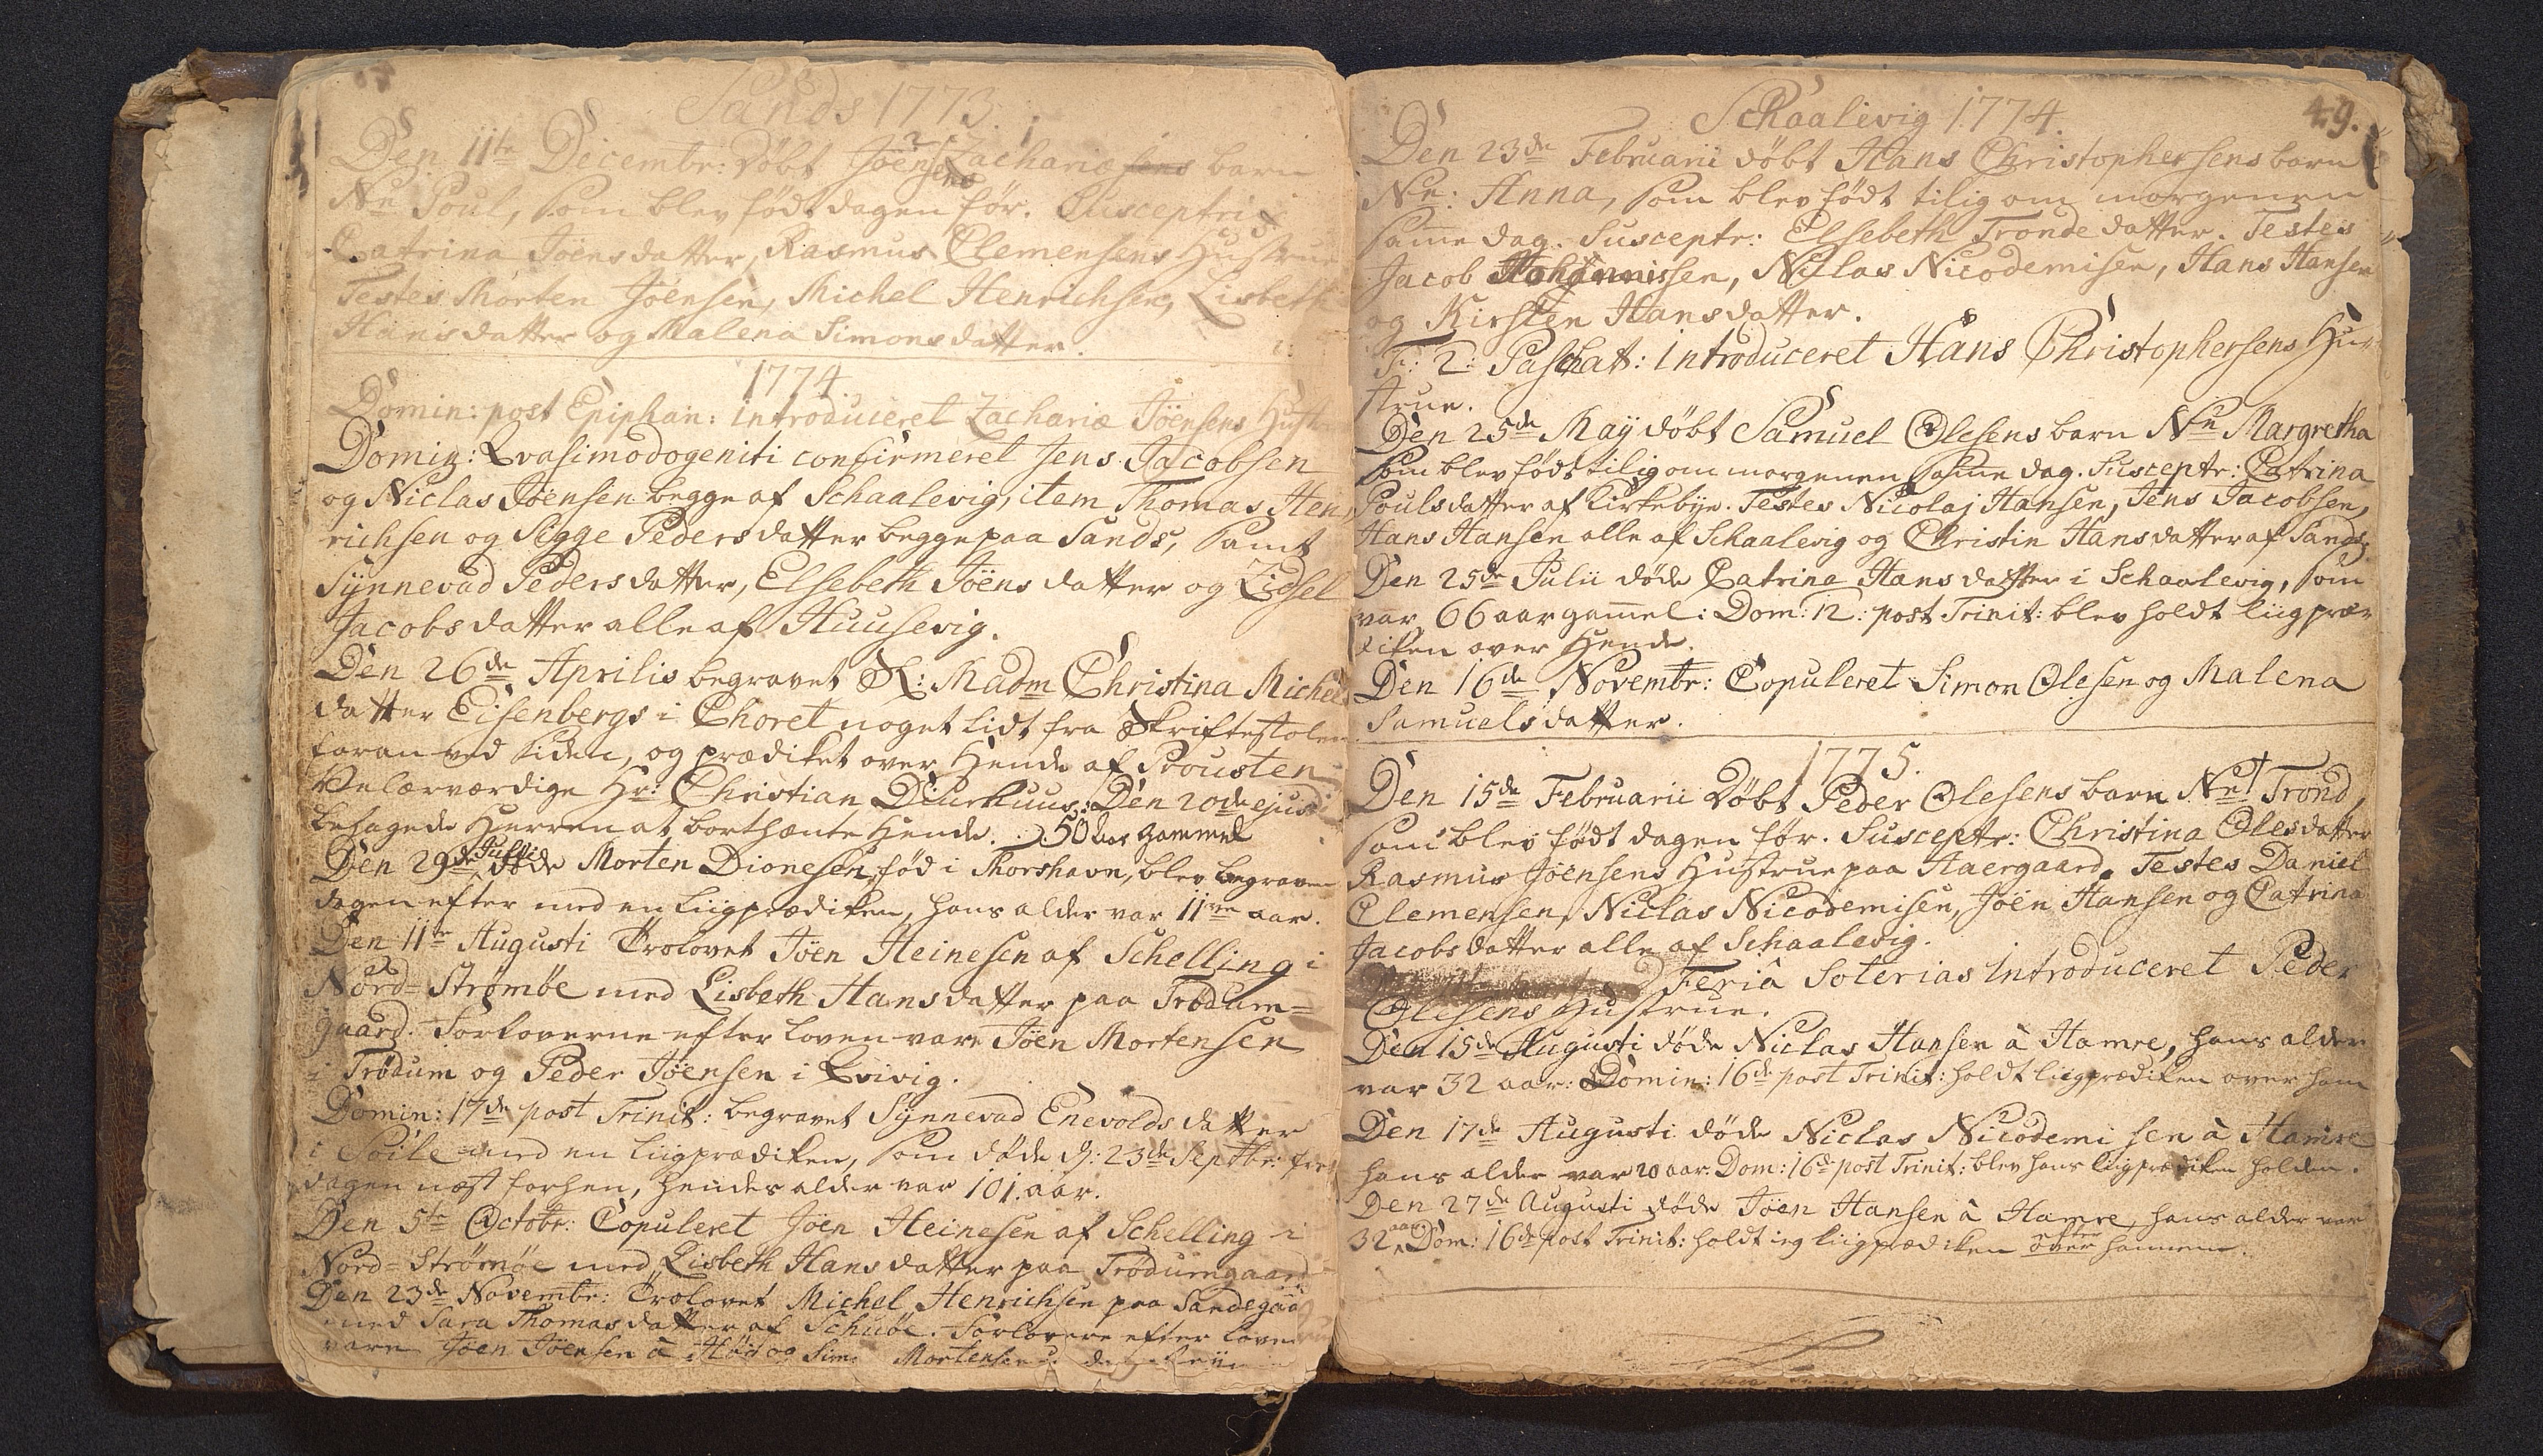 Sands 1773.
Den 11te Decembr: døbt Jöens Zachariæsens barn
Nn Poul, som blev födt dagen før. Susceptrix
Catrina Jöensdatter, Rasmus Clemensens Hustrue
Testes Morten Jöensen, Michel Henrichsen, Lisbeth
Hansdatter og Malena Simonsdatter.
1774
Domin: post Epiphan: introduceret Zachariæ Jöensens Hustr
Domin: Qvasimodogeniti confirmeret Jens Jacobsen
og Niclas Jöensen begge af Schaalevig, item Thomas Hen
richsen og Sigge Pedersdatter begge paa Sands, samt
Synnevad Pedersdatter, Elsebeth Jöensdatter og Zidsel
Jacobsdatter alle af Huusevig.
Den 26de Aprilis begravet S: Madm Christina Michels
datter Eisenbergs i Choret noget lidt fra Skriftestolen
foran ved siden, og prædiket over Hende af Prousten
Velærværdige Hr: Christian Diurhuus. Den 20de ejusd:
behagede Herren at borthænte Hende. 50 aar gammel
Den 29de Julii døde Morten Dionesen, fød i Thorshavn, blev begraven
dagen efter med en liigprædiken, hans alder var 11ve aar.
Den 11te Augusti Trolovet Jöen Heinesen af Schelling i
Nord-Strømöe med Lisbeth Hansdatter paa Trødum-
gaard. Forloverne efter loven vare Jöen Mortensen
i Trødum og Peder Jöensen i Qvivig.
Domin: 17de post Trinit: begravet Synnevad Enevoldsdatter
i Söile med en liigprædiken, som døde d: 23de Septbr:
dagen næst forhen, hendes alder var 101 aar.
Den 5te Octobr: Copuleret Jöen Heinesen af Schelling i
Nord-Strømöe med Lisbeth Hansdatter paa Trødumgaard
Den 23de Novembr: Trolovet Michel Henrichsen paa Sandegaa
med Sara Thomasdatter af Schuöe. Forlovere efter loven
vare Jöen Jöensen à og Mortensen
Schaalevig 1774. 49.
Den 23de Februarii døbt Hans Christophersens barn
Nn: Anna, som blev födt tilig om morgenen
samme dag. Susceptr: Elsebeth Trondedatter. Testes
Jacob Johannissen, Niclas Nicodemisen, Hans Hansen
og Kirsten Hansdatter.
Fr: 2: Paschat: introduceret Hans Christophersens Hu-
strue.
Den 25de May døbt Samuel Olesens barn Nn Margretha
som blev födt tilig om morgenen samme dag. Susceptr: Catrina
Poulsdatter af Kirkebye. Testes Nicolaj Hansen, Jens Jacobsen,
Hans Hansen alle af Schaalevig og Christin Hansdatter af Sands.
Den 25de Julii døde Catrina Hansdatter i Schaalevig, som
var 66 aar gammel: Dom: 12: post Trinit: blev holdt liigpræ-
diken over Hende.
Den 16de Novembr: Copuleret Simon Olesen og Malena
Samuelsdatter.
1775.
Den 15de Februarii Døbt Peder Olesens barn Nn Trond,
som blev födt dagen før. Susceptr: Christina Olesdatter
Rasmus Jöensens Hustrue paa Aaergaard. Testes Daniel
Clemensen, Niclas Nicodemisen, Jöen Hansen og Catrina
Jacobsdatter alle af Schaalevig.
Feriâ Soterias introduceret Peder
Olesens Hustrue.
Den 15de Augusti døde Niclas Hansen à Hamre, hans alder
var 32 aar: Domin: 16de post Trinit: holdt liigprædiken over ham
Den 17de Augusti døde Niclas Nicodemisen à Hamre
hans alder var 20 aar. Dom: 16de post Trinit: blev hans liigprædiken holden.
Den 27de Augusti døde Jöen Hansen à Hamre, hans alder var
32 aar, Dom: 16de post Trinit: holdt ieg liigprædiken efter over hannem.